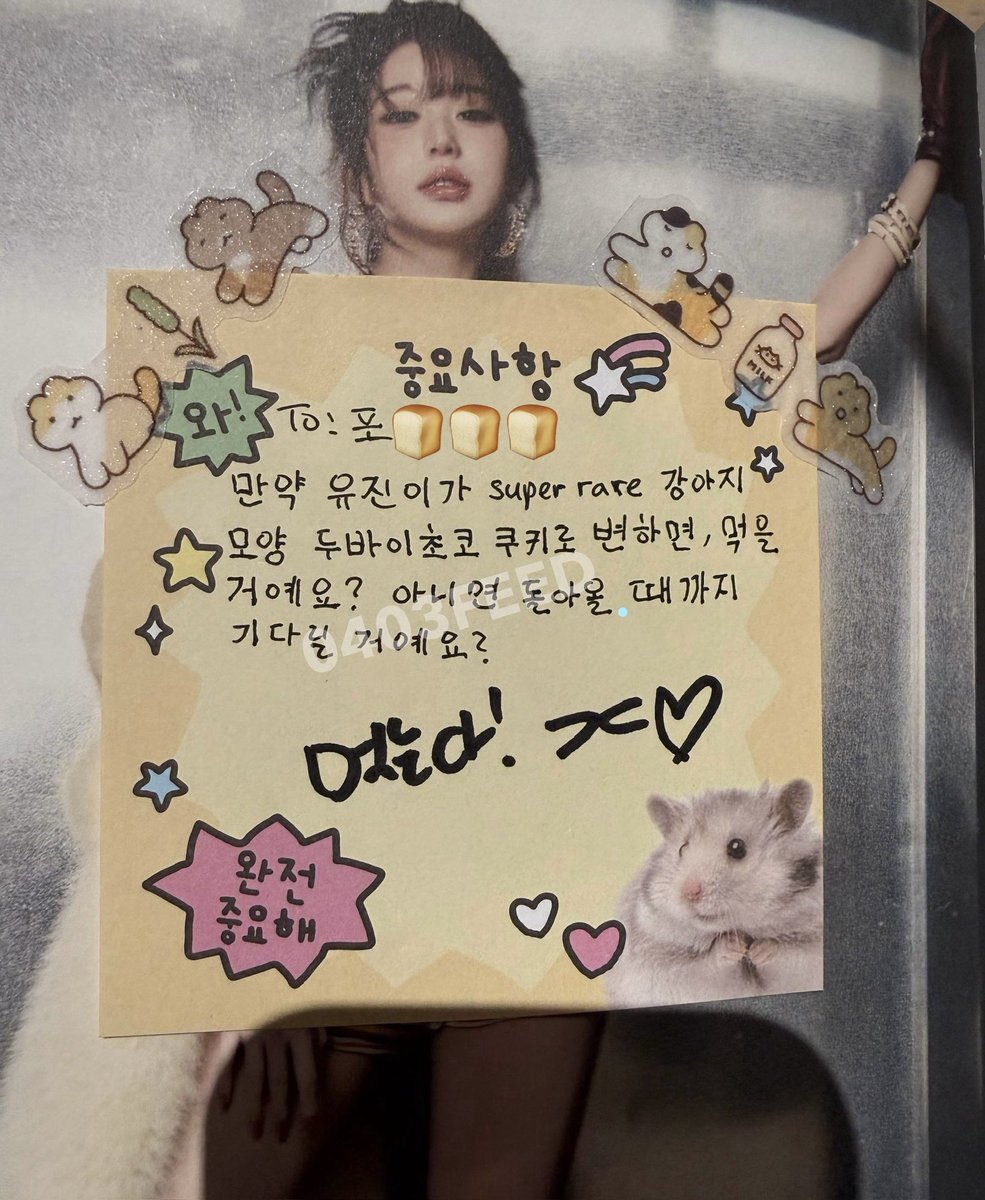 중요사항
와!
To: 포
만약 유진이가 super rare 강아지
모양 두바이초코 쿠키로 변하면, 먹을
거예요? 아니면 돌아올 때까지
기다릴 거예요?
0403FEED
먹는다!
완전
중요해
MILK